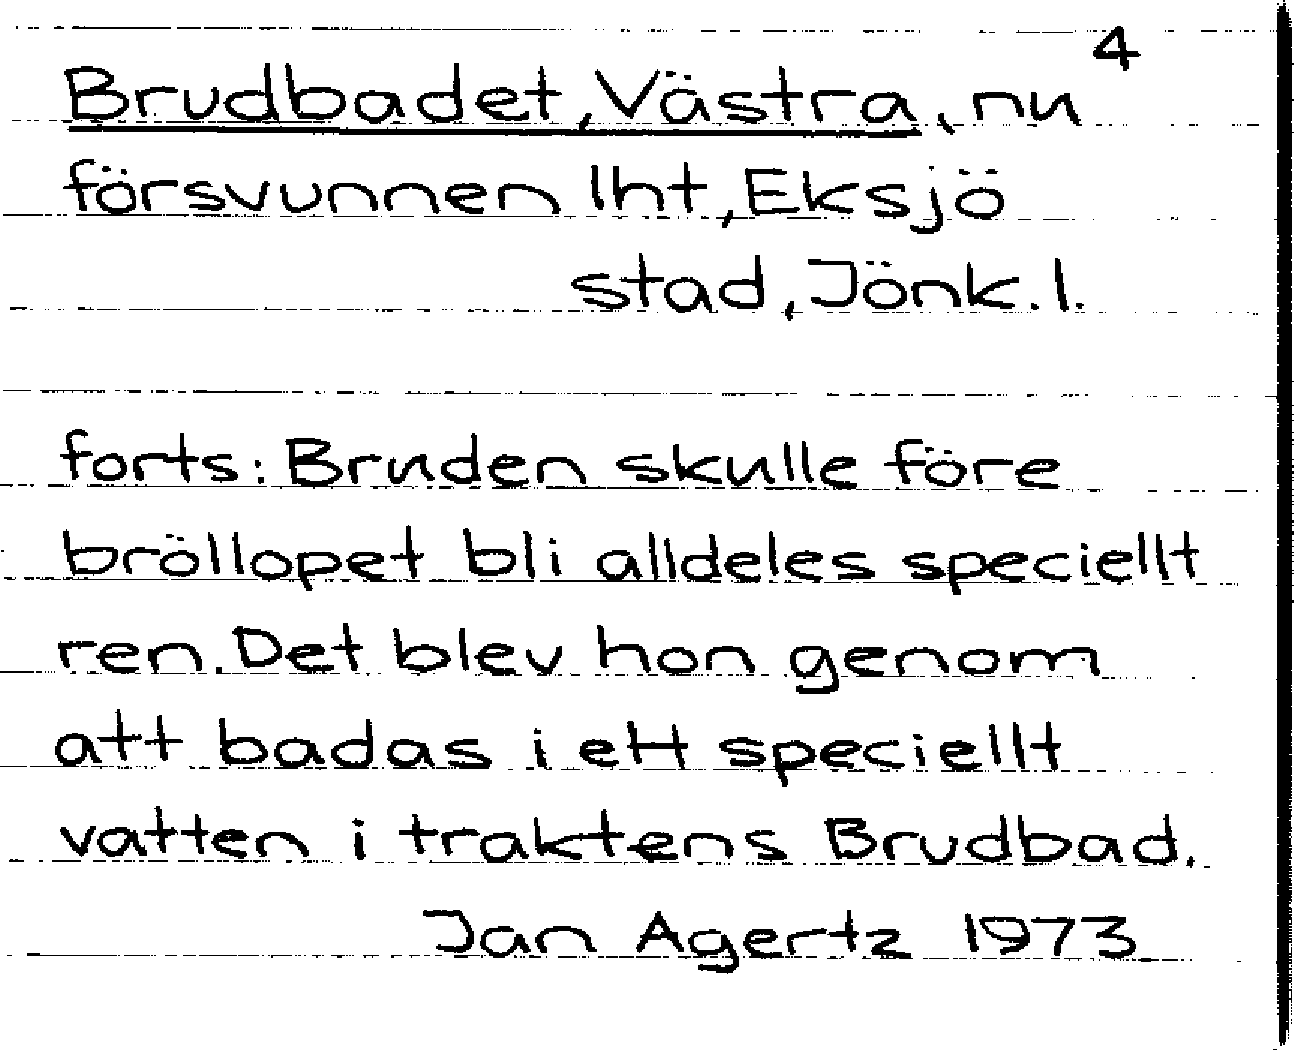 4
Brudbadet, Västra, nu
försvunnen lht, Eksjö
stad, Jönk. l.
forts: Bruden skulle före
bröllopet bli alldeles speciellt
ren. Det blev hon genom
att badas i ett speciellt
vatten i traktens Brudbad.
Jan Agertz 1973